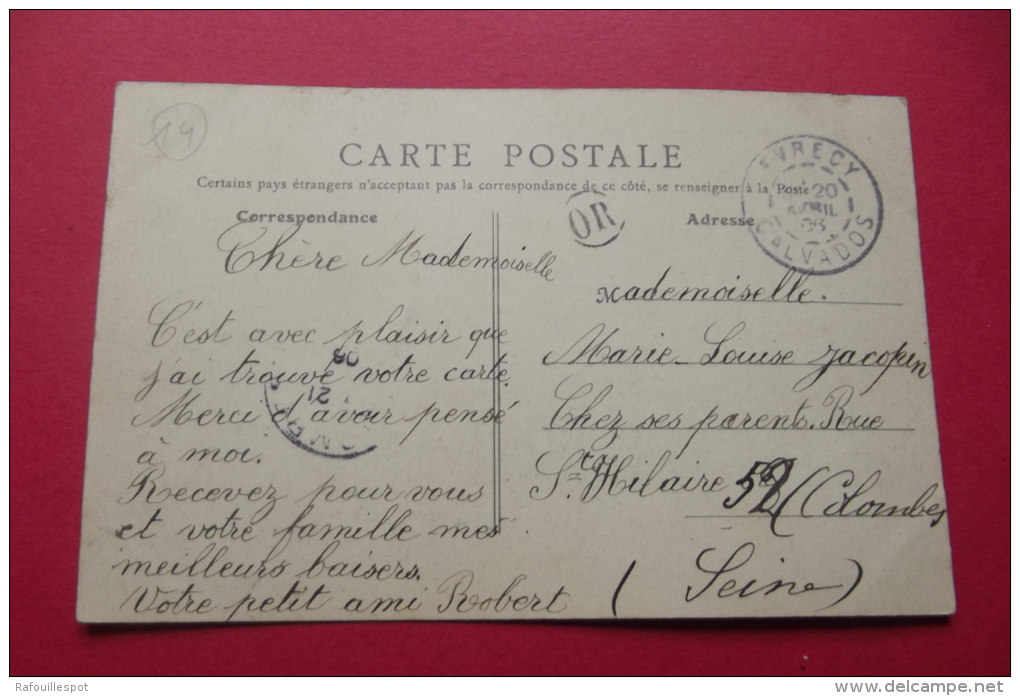 14
CARTE POSTALE
Certains pays étrangers n'acceptant pas la correspondance de ce côté, se renseigner à la Poste
Correspondance
Adresse
OR
EVRECY
20
AVRIL
CALVADOS
Chère Mademoiselle
C'est avec plaisir que
j'ai trouvé votre carte.
Merci d'avoir pensé
à moi.
Recevez pour vous
et votre famille mes
meilleurs baisers.
Votre petit ami Robert
21
Mademoiselle.
Marie-Louise Jacopin
Chez ses parents. Rue
St. Hilaire 52 (Colombes
(Seine)
Rafouillespot
www.delcampe.net